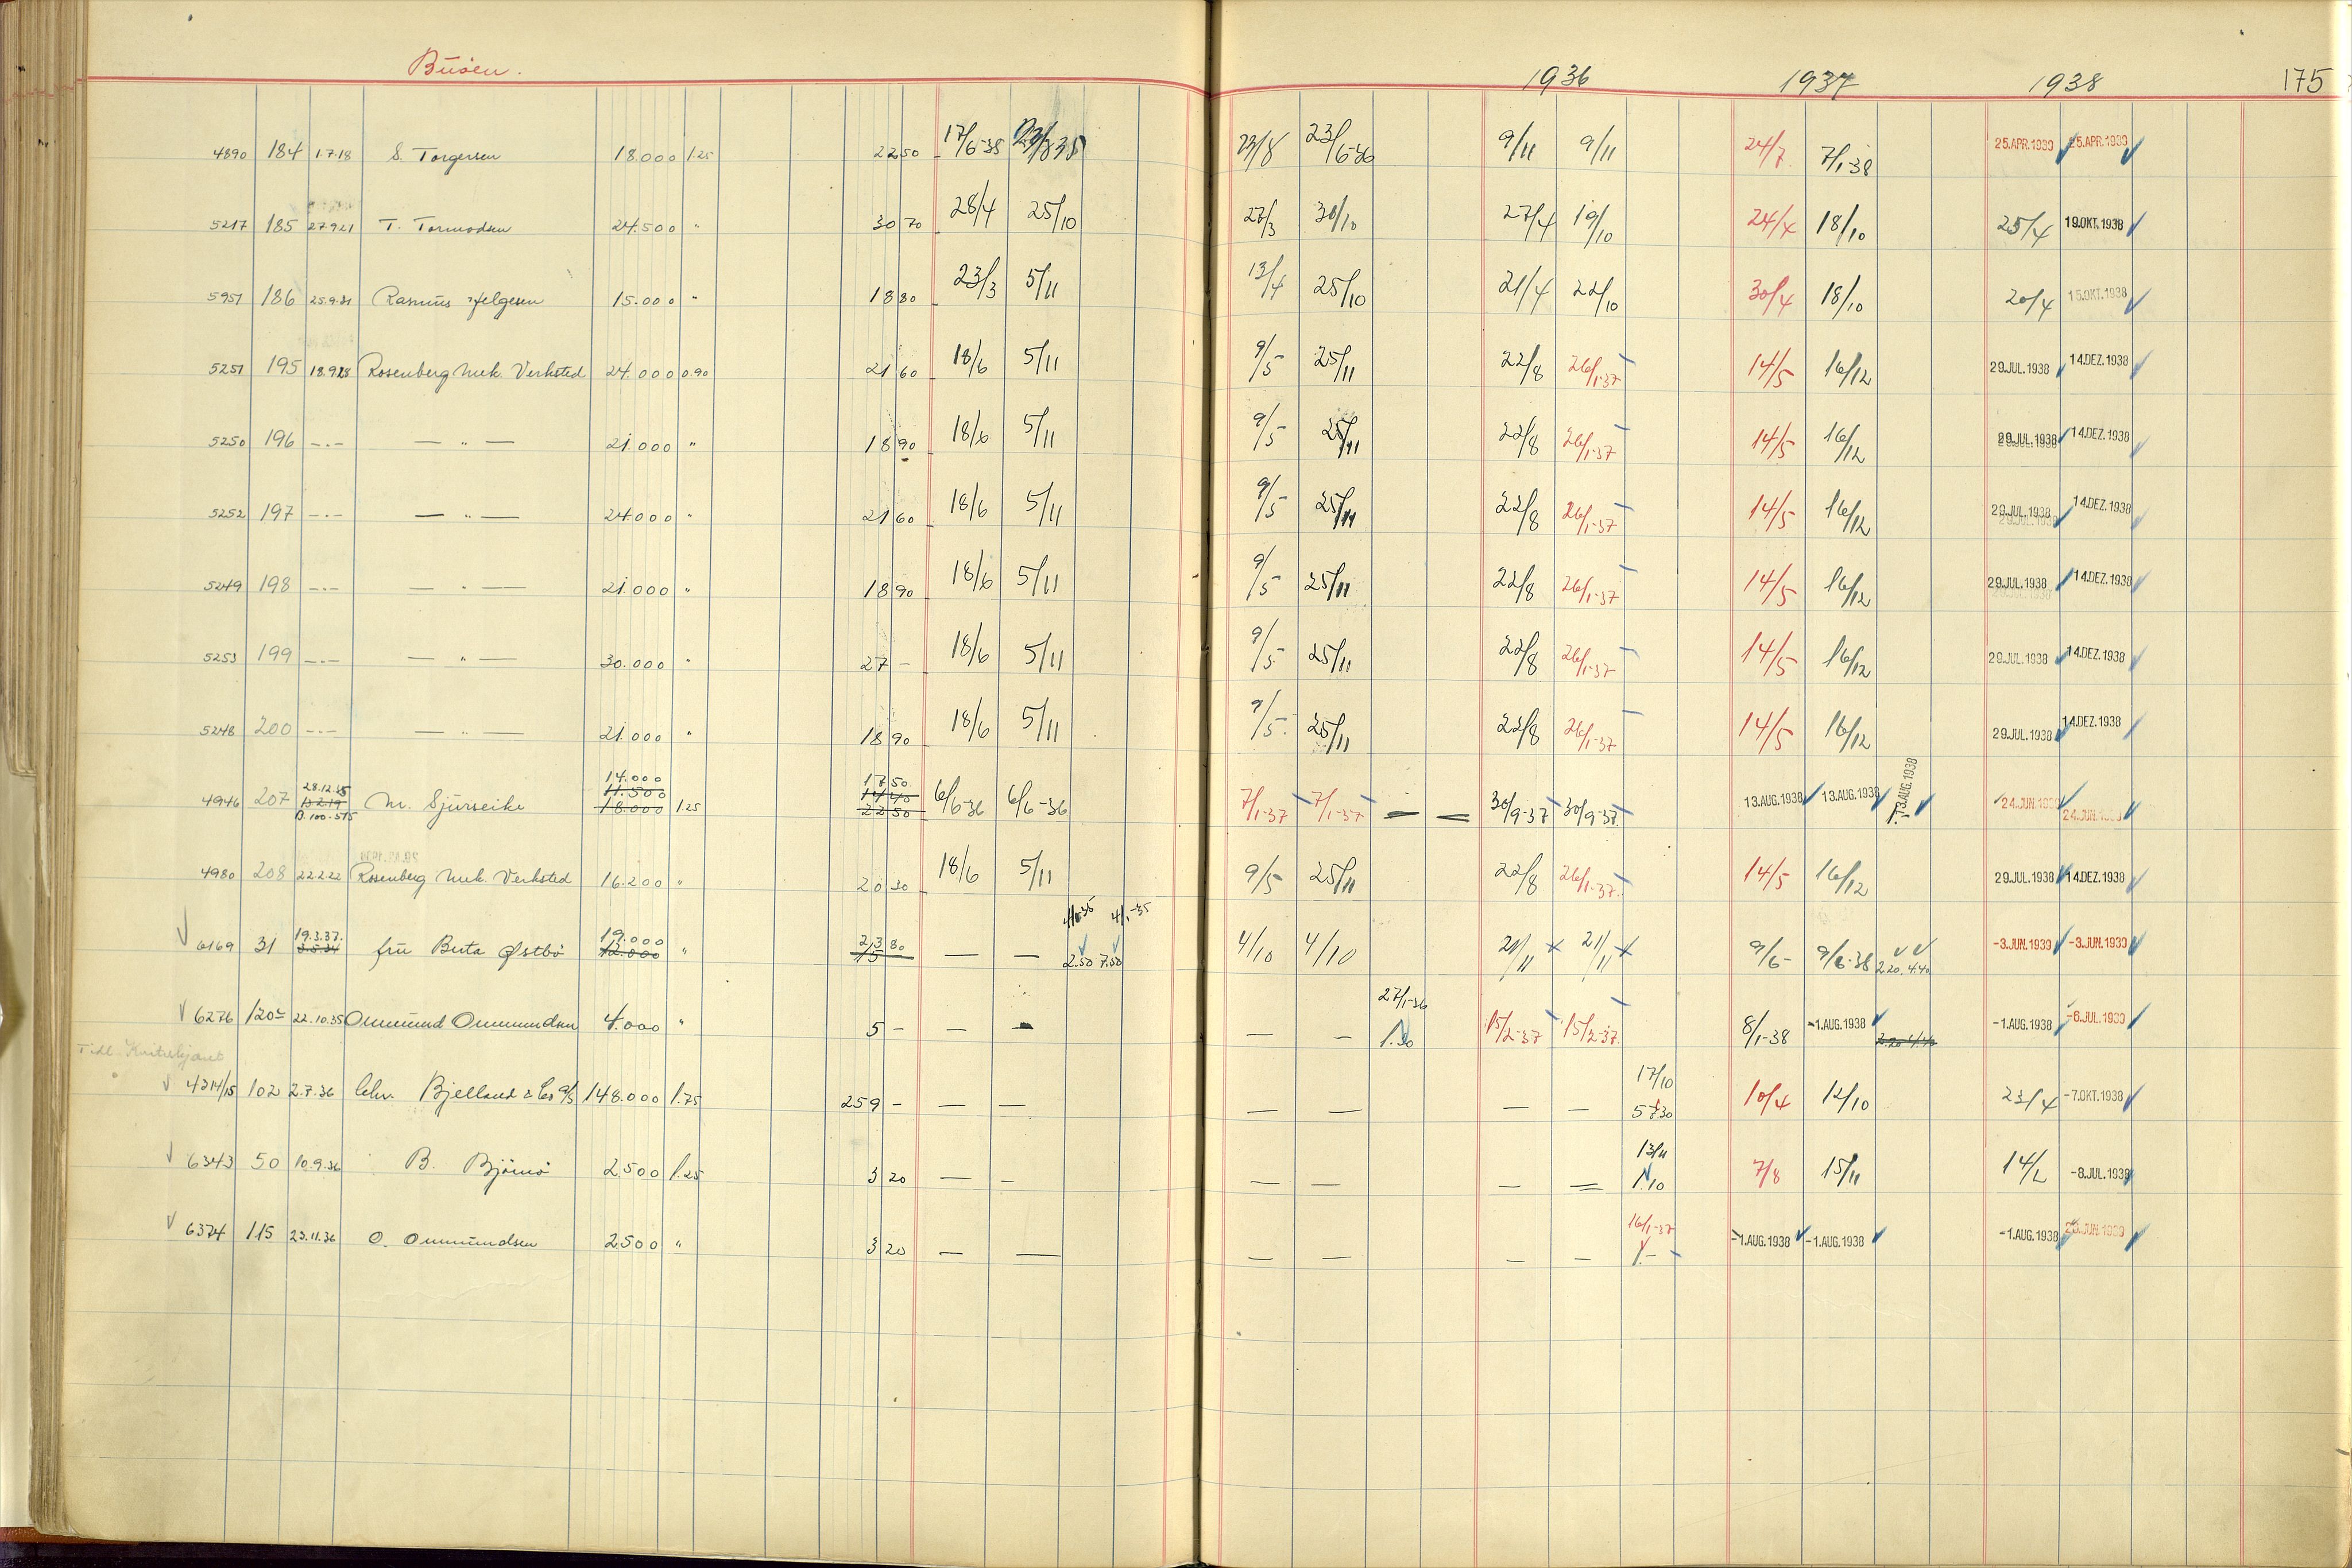 Büöen. 1936 1937 1938 175
4890 184 1.7.18 S. Torgersen 18.000 1.25 22 50 17/6-35 23/8 23/6-36 9/11 9/11 24/7 7/1-38 25.APR.1939 25.APR.1939
5217 185 27.9.21 T. Tormodsen 24.500 " 30 70 28/4 25/10 27/3 30/10 27/4 19/10 24/4 18/10 25/4 19.OKT.1938
5951 186 25.9.31 Rasmus Helgesen 15.000 " 18 80 23/3 5/11 13/4 25/10 21/4 22/10 30/4 18/10 20/4 15.OKT.1938
5251 195 18.9.28 Rosenberg Mek. Verksted 24.000 0.90 21 60 18/6 5/11 9/5 25/11 22/8 26/1-37 14/5 16/12 29.JUL.1938 14.DEZ.1938
5250 196 -"- — " — 21.000 " 18 90 18/6 5/11 9/5 25/11 22/8 26/1-37 14/5 16/12 29.JUL.1938 14.DEZ.1938
5252 197 -"- — " — 24.000 " 21 60 18/6 5/11 9/5 25/11 22/8 26/1-37 14/5 16/12 29.JUL.1938 14.DEZ.1938
5249 198 -"- — " — 21.000 " 18 90 18/6 5/11 9/5 25/11 22/8 26/1-37 14/5 16/12 29.JUL.1938 14.DEZ.1938
5253 199 -"- — " — 30.000 " 27 - 18/6 5/11 9/5 25/11 22/8 26/1-37 14/5 16/12 29.JUL.1938 14.DEZ.1938
5248 200 -"- — " — 21.000 " 18 90 18/6 5/11 9/5 25/11 22/8 26/1-37 14/5 16/12 29.JUL.1938 14.DEZ.1938
28.12.35 14.000 17 50
4946 207 13.2.19 M. Sjurseike 11.500 14 40 6/6-36 6/6-36 7/1-37 7/1-37 — — 30/9-37 30/9-37 13.AUG.1938 13.AUG.1938 13.AUG.1938 24.JUN.1939 24.JUN.1939
B.100-515 18.000 1.25 22 50
4980 208 22.2.22 Rosenberg Mek. Verksted 16.200 " 20 30 18/6 5/11 9/5 25/11 22/8 26/1-37 14/5 16/12 29.JUL.1938 14.DEZ.1938
19.3.37. 19.000 23 80 4/1-35
6169 31 3.5.34 fru Berta Østbö 12.000 " 15 — — 2.50 7.50 4/10 4/10 21/11 21/11 9/6 9/6-38 2.20 4.40 -3.JUN.1939 -3.JUN.1939
27/1-36
6276 120 22.10.35 Ommund Ommundsen 4.000 " 5 - — — — — 1.30 15/2-37 15/2-37 8/1-38 -1.AUG.1938 -1.AUG.1938 -6.JUL.1939
Tidl. Kvitebjørnt
17/10
4314/15 102 2.7.36 Chr. Bjelland & Co A/S 148.000 1.75 259 - — — — — — — 10/4 12/10 23/4 -7.OKT.1938
13/11
6343 50 10.9.36 B. Björnö 2.500 1.25 3 20 — — — — — — 1.10 7/8 15/11 14/2 -8.JUL.1938
16/1-37
6374 115 23.11.36 O. Ommundsen 2.500 " 3 20 — — — — — — 1.- -1.AUG.1938 -1.AUG.1938 -1.AUG.1938